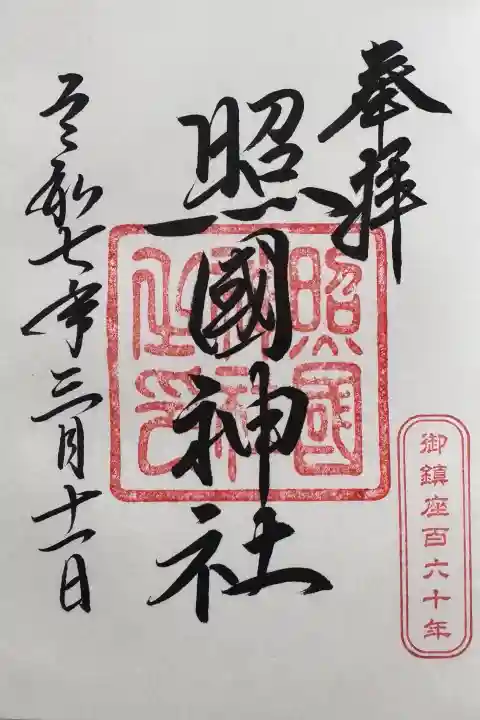 奉拝
照國神社
照國神社之印
令和七年三月十一日
御鎮座百六十年